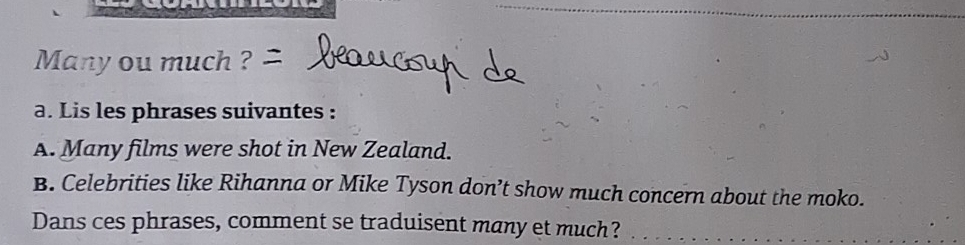 LES QUANTIFIEURS
Many ou much ? = beaucoup de
a. Lis les phrases suivantes :
A. Many films were shot in New Zealand.
B. Celebrities like Rihanna or Mike Tyson don't show much concern about the moko.
Dans ces phrases, comment se traduisent many et much ? ................